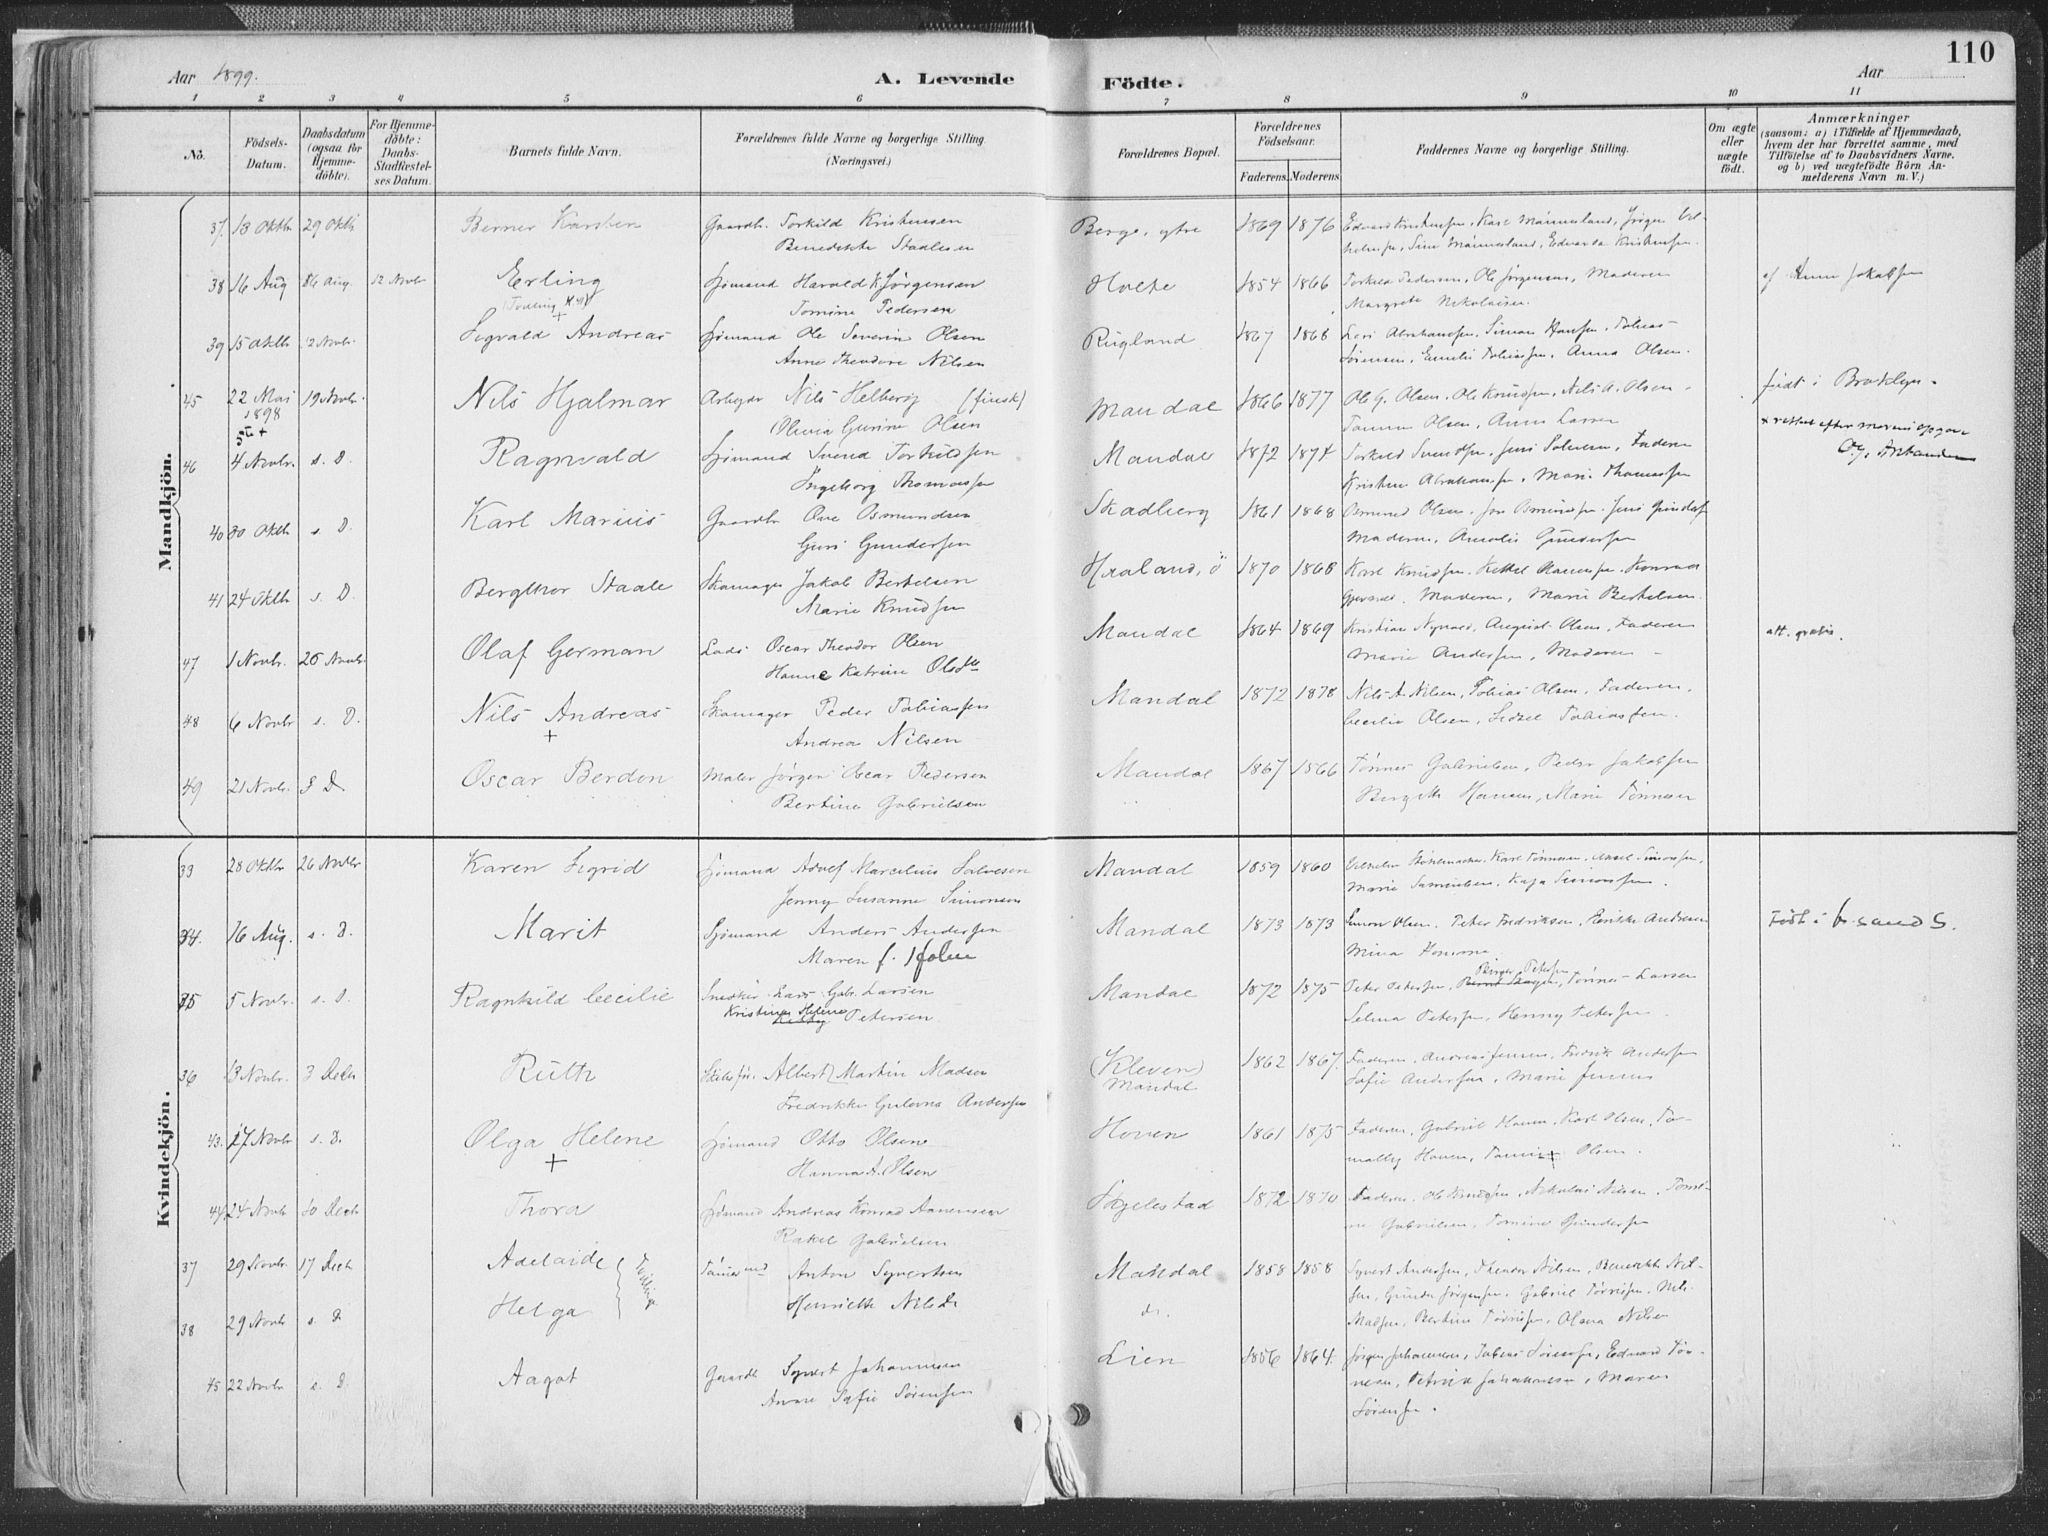 Aar 1899.
A. Levende Födte.
Aar
110
1 2 3 4 5 6 7 8 9 10 11
No.
Födsels-Datum.
Daabsdatum (ogsaa for Hjemme-döbte).
For Hjemme-döbte: Daabs-Stadfæstel-ses Datum.
Barnets fulde Navn.
Forældrenes fulde Navne og borgerlige Stilling (Næringsvei.)
Forældrenes Bopæl.
Forældrenes Födselsaar.
Faderens. Moderens.
Faddernes Navne og borgerlige Stilling.
Om ægte eller uægte födt.
Anmærkninger (saasom: a) i Tilfælde af Hjemmedaab, hvem der har forrettet samme, med Tilföielse af to Daabsvidners Navne, og b) ved uægtefödte Börn Anmelderens Navn m. V.)
Mandkjön.
37. 18 Oktb 29 Oktb Berner Karsten Gaardb. Torkild Kristensen Berge, ytre 1869 1876 Edvard Kristensen, Karl Mannesland, Jørgen Vil-
Benedikte Staalesen helmsen, Sine Mannesland, Edvarda Kristensen.
38 16 Aug 12 Novbr Erling Sjömand Harald K Jørgensen Holte 1854 1866 Torkild Pedersen, Ole Jørgensen, Moderen
Tomine Pedersen Margrete Nikolaisen.
af Anne Jakobsen
39 15 Oktb 12 Novbr. Sigvald Andreas Sjömand Ole Severin Olsen Rugland 1867 1868 Abrahamsen, Simon Hansen, Tobias
Anne Theodore Nilsen Sørensen, Emilie Tobiassen, Anna Olsen.
45 22 Mai 1898 19 Novbr. Nils Hjalmar Arbeyder Nils Helberg (finsk) Mandal 1866 1877 Ole G. Olsen, Ole Knudsen, Nils A. Olsen
5te +
Olivia Gurine Olsen Olsen, Anna Larsen
født i Brooklyn.
+ rettet efter morens opgave
46 4 Novbr. s. D. Ragnvald Sjömand Svend Torkildsen Mandal 1872 1874 Torkild Svendsen, Jens Salvesen, Faderen
Ingeborg Thomassen Kristine Abrahamsen, Marie Thomassen
40 30 Oktb s. D. Karl Marius Gaardbr Ove Osmundsen Skadberg 1861 1868 Osmund Olsen, Jon Osmundsen,
Guri Gundersen Moderen, Gundersen
41 24 Oktb s. D. Bergthor Staale Skomager Jakob Bertelsen Haaland, ö 1870 1868 Karl Knudsen, Kettel Hansen, Konrad
Marie Knudsen Moderen, Marie Bertelsen.
47 1 Novbr. 26 Novbr. Olaf German Lods Oscar Theodor Olsen Mandal 1864 1869 Kristian Nyvold, August Olsen, Faderen
Hanne Katrine Olsdtr Marie Andersen, Moderen
att. gratis.
48 6 Novbr s. D. Nils Andreas Skomager Peder Tobiassen Mandal 1872 1878 Nils A. Nilsen, Tobias Olsen, Faderen,
+
Andrea Nilsen Cecilie Olsen, Sidsel Tobiassen.
49 21 Novbr. s D. Oscar Berdon Maler Jørgen Oscar Pedersen Mandal 1867 1866 Tønnes Gabrielsen, Peder Jakobsen
Bertine Gabrielsen Bergitte Hansen, Marie Tønnesen
Kvindekjön.
33 28 Oktbr 26 Novbr Karen Sigrid Sjömand Adolf Marcelius Salvesen Mandal 1859 1860 Karl Tønnesen, Aksel Simonsen,
Jenny Susanne Simonsen Marie Samuelsen, Kaja Simonsen.
34. 16 Aug. s. D. Marit Sjömand Anders Andersen Mandal 1873 1873 Simon Olsen, Peter Fredriksen, Andersen
Maren f. Holm Mina
Født i krsand S.
35 5 Novbr. s. D. Ragnhild Cecilie Snedker Lars Gab. Larsen Mandal 1872 1875 Peter Petersen, Birger Petersen, Tønnes Larsen
Kristine Helene Petersen Selma Petersen, Henny Petersen
36 13 Novbr. 3 Decbr Ruth Albert Martin Madsen (Kleven) Mandal 1862 1867. Faderen, Andreas Jensen, Fredrik Andersen
Fredrikke Gulovna Andersen Sofie Andersen, Marie Jensen
43. 17 Novbr s. D. Olga Helene Sjömand Otto Olsen Hoven 1861 1875 Faderen, Gabriel Hoven, Karl Olsen, To-
+
Hanna A. Olsen Hoven, Olsen.
44. 24 Novbr 10 Decbr Thora Sjömand Andreas Konrad Aanensen Skjelestad 1872 1870 Faderen, Ole Knudsen, Nikolai Nilsen,
Rakel Gabrielsen Gabrielsen, Tomine Gundersen
37 29 Novbr. 17 Decbr Adelaide Tvillinge Anton Syvertsen Mandal 1858 1858 Syvert Andersen, Theodor Nilsen, Benedikte Nil-
sen, Gunder Jørgensen, Gabriel Tørrisen, Nils
38 29 Novbr s. D Helga Henriette Nilsdr do. Madsen, Bertine Tørrisen, Olava Nilsen
45 22 Novbr s. D. Aagot Gaardb Syvert Johannesen Lien 1856 1864. Jørgen Johannesen, Tobias Sørensen, Edvard Tøn-
Anne Sofie Sørensen nesen, Petrine Johannesen, Maren
Sørensen.